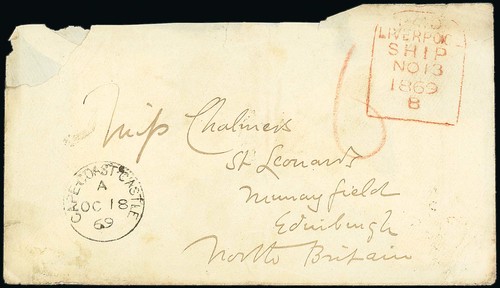 LIVERPOOL
SHIP
NO 13
1869
B
6
Miss Chalmers
St Leonards
Murrayfield
Edinburgh
North Britain
CAPE-COAST-CASTLE
A
OC 18
69